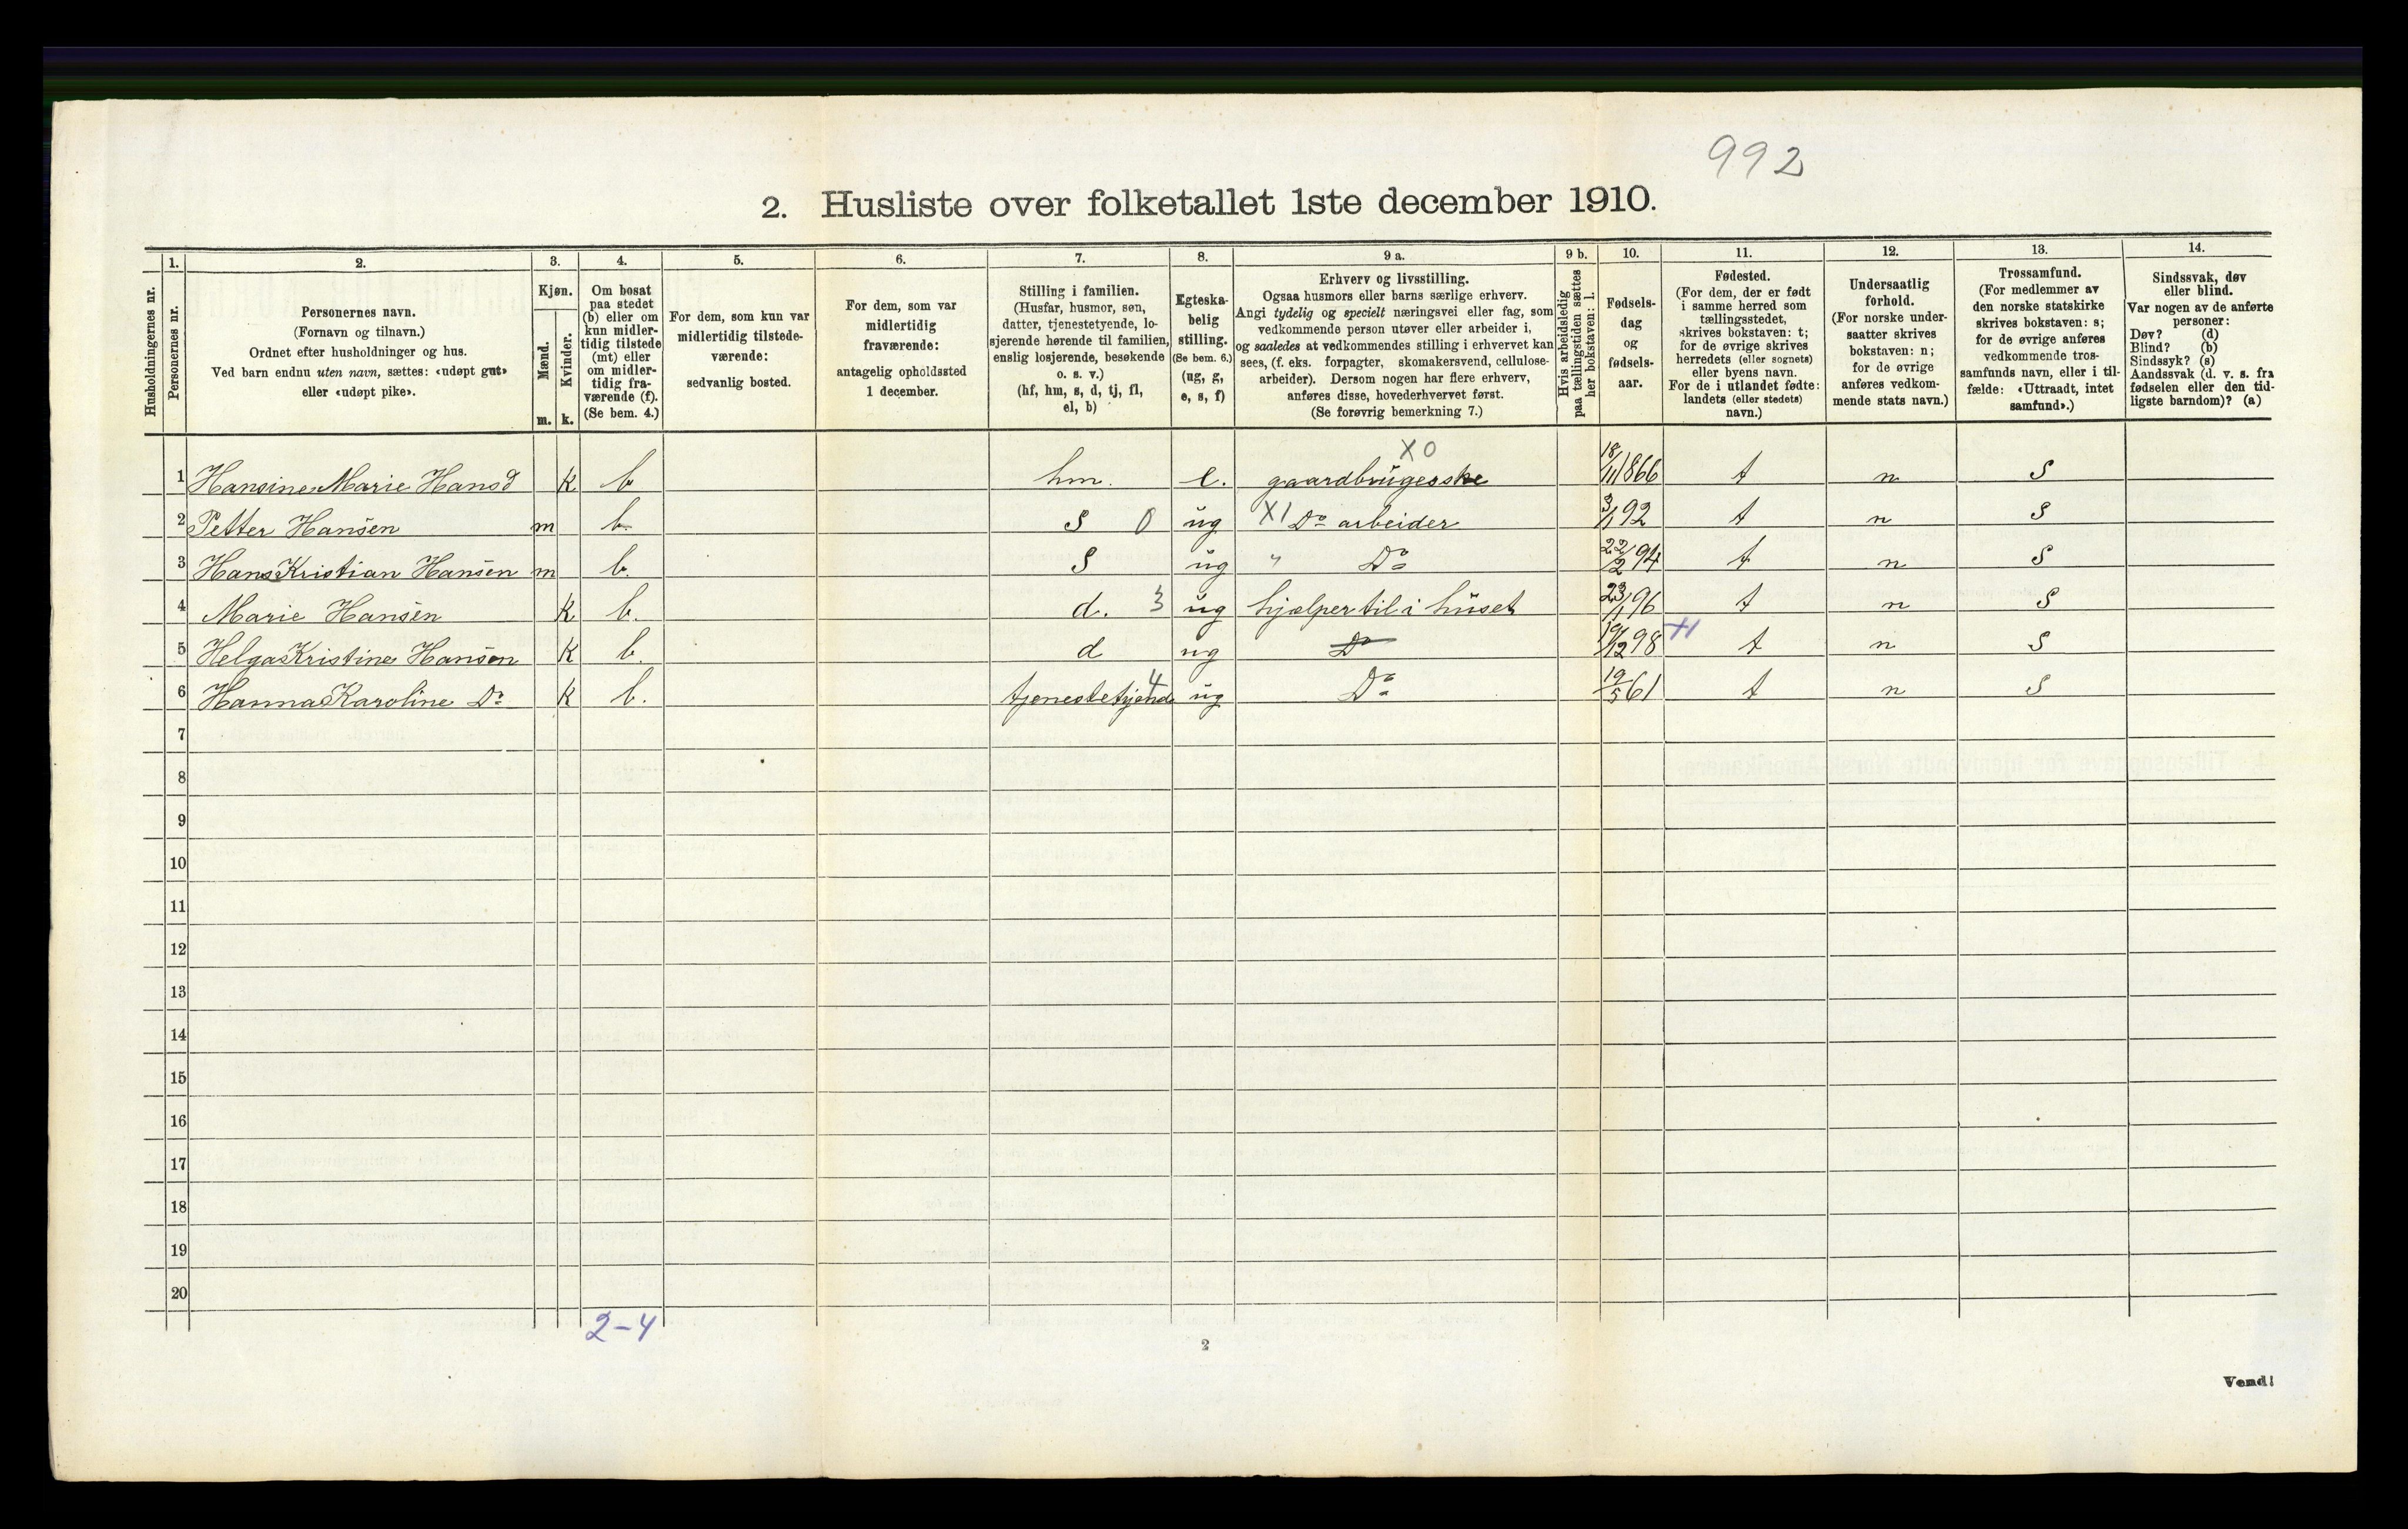 992
2. Husliste over folketallet 1ste december 1910.
Husholdningernes nr.
1.
Personernes nr.
2.
Personernes navn.
(Fornavn og tilnavn.)
Ordnet efter husholdninger og hus.
Ved barn endnu uten navn, sættes: «udøpt gut»
eller «udøpt pike».
3.
Kjøn.
Mænd.
Kvinder.
m. k.
4.
Om bosat
paa stedet
(b) eller om
kun midler-
tidig tilstede
(mt) eller
om midler-
tidig fra-
værende (f).
(Se bem. 4.)
5.
For dem, som kun var
midlertidig tilstede-
værende:
sedvanlig bosted.
6.
For dem, som var
midlertidig
fraværende:
antagelig opholdssted
1 december.
7.
Stilling i familien.
(Husfar, husmor, søn,
datter, tjenestetyende, lo-
sjerende hørende til familien,
enslig losjerende, besøkende
o. s. v.)
(hf, hm, s, d, tj, fl,
el, b)
8.
Egteska-
belig
stilling.
(Se bem. 6.)
(ug, g,
e, s, f)
9 a.
Erhverv og livsstilling.
Ogsaa husmors eller barns særlige erhverv.
Angi tydelig og specielt næringsvei eller fag, som
vedkommende person utøver eller arbeider i,
og saaledes at vedkommendes stilling i erhvervet kan
sees, (f. eks. forpagter, skomakersvend, cellulose-
arbeider). Dersom nogen har flere erhverv,
anføres disse, hovederhvervet først.
(Se forøvrig bemerkning 7.)
9 b.
Hvis arbeidsledig
paa tællingstiden sættes
her bokstaven: l.
10.
Fødsels-
dag
og
fødsels-
aar.
11.
Fødested.
(For dem, der er født
i samme herred som
tællingsstedet,
skrives bokstaven: t;
for de øvrige skrives
herredets (eller sognets)
eller byens navn.
For de i utlandet fødte:
landets (eller stedets)
navn.)
12.
Undersaatlig
forhold.
(For norske under-
saatter skrives
bokstaven: n;
for de øvrige
anføres vedkom-
mende stats navn.)
13.
Trossamfund.
(For medlemmer av
den norske statskirke
skrives bokstaven: s;
for de øvrige anføres
vedkommende tros-
samfunds navn, eller i til-
fælde: «Uttraadt, intet
samfund».)
14.
Sindssvak, døv
eller blind.
Var nogen av de anførte
personer:
Døv? (d)
Blind? (b)
Sindssyk? (s)
Aandssvak (d. v. s. fra
fødselen eller den tid-
ligste barndom)? (a)
X 0
1 Hansine Marie Hansd K b hm. e. gaardbrugerske 18/11 1866 t n S
2 Petter Hansen m b. S 0 ug X1 Do arbeider 3/1 92 t n S
3 Hans Kristian Hansen m b. S ug " Do 22/2 94 t n S
4 Marie Hansen K b. d. 3 ug hjælper til i huset 23/1 96 t n S
5 Helga Kristine Hansen K b. d ug Do 19/12 98 t n S
6 Hanna Karoline Do K b. tjenestetyende 4 ug Do 19/5 61 t n S
7
8
9
10
11
12
13
14
15
16
17
18
19
20
2-4
2
Vend!